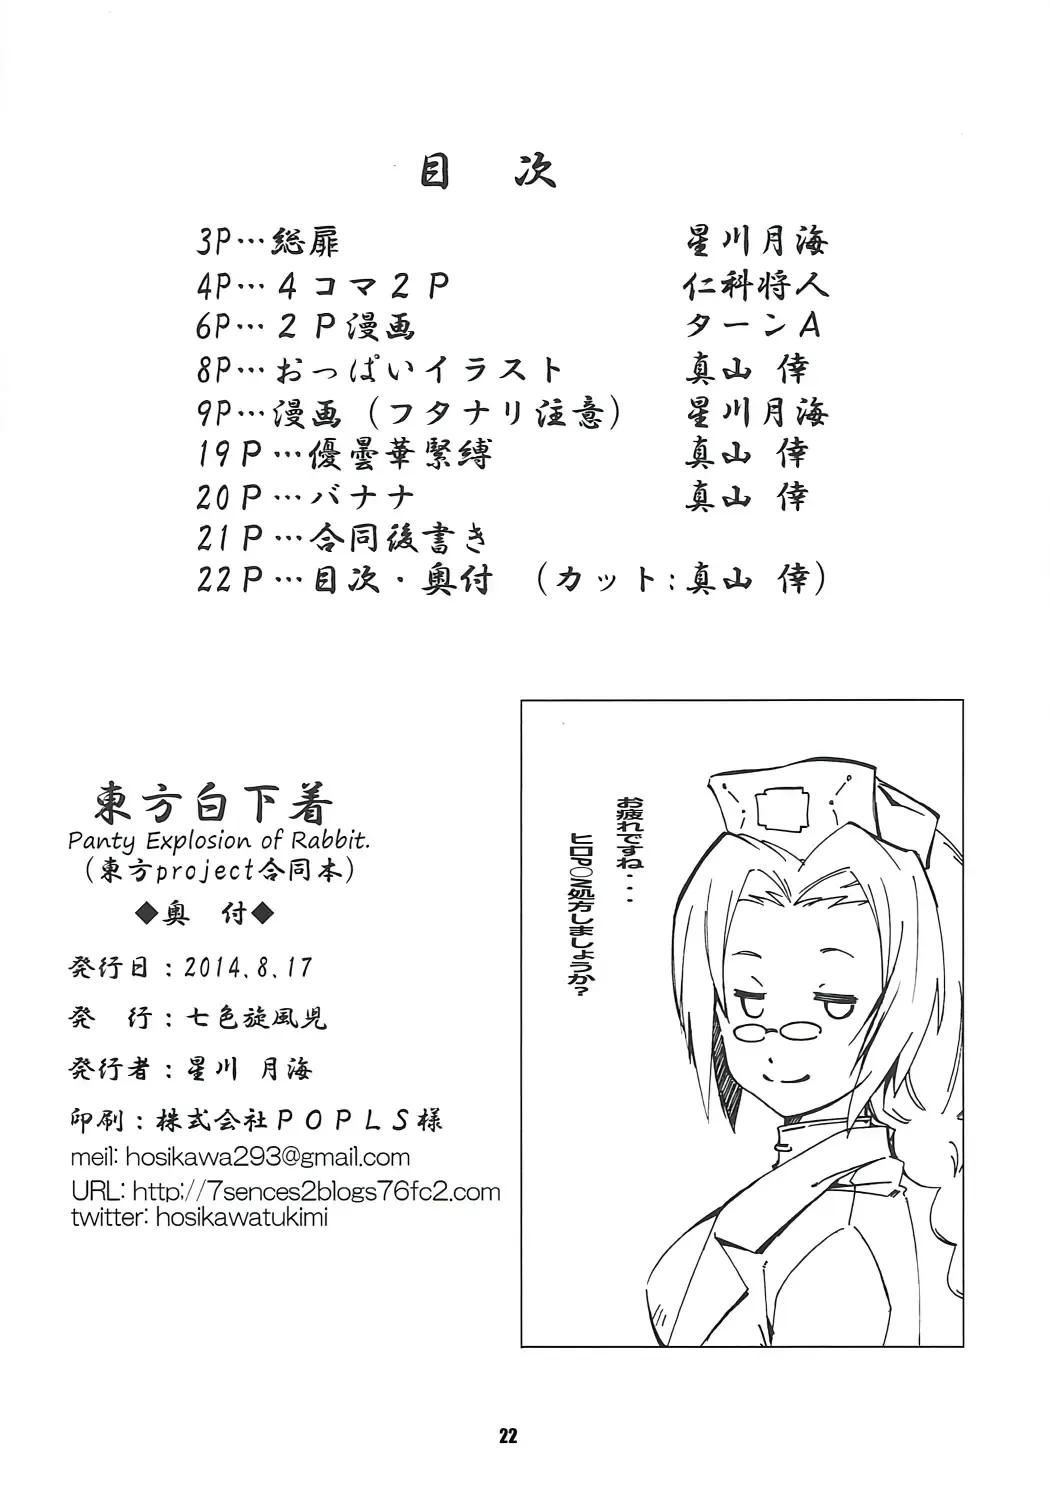 目 次
3P…総扉 星川月海
4P…４コマ２Ｐ 仁科将人
6P…２Ｐ漫画 ターンＡ
8P…おっぱいイラスト 真山 倖
9P…漫画（フタナリ注意） 星川月海
19Ｐ…優曇華緊縛 真山 倖
20Ｐ…バナナ 真山 倖
21Ｐ…合同後書き
22Ｐ…目次・奥付 （カット:真山 倖）
お疲れですね・・・
ヒロP○N処方しましょうか？
東方白下着
Panty Explosion of Rabbit.
（東方project合同本）
◆奥 付◆
発行日：2014.8.17
発 行：七色旋風児
発行者：星川 月海
印刷：株式会社ＰＯＰＬＳ様
meil: hosikawa293@gmail.com
URL: http://7sences2blogs76fc2.com
twitter: hosikawatukimi
22